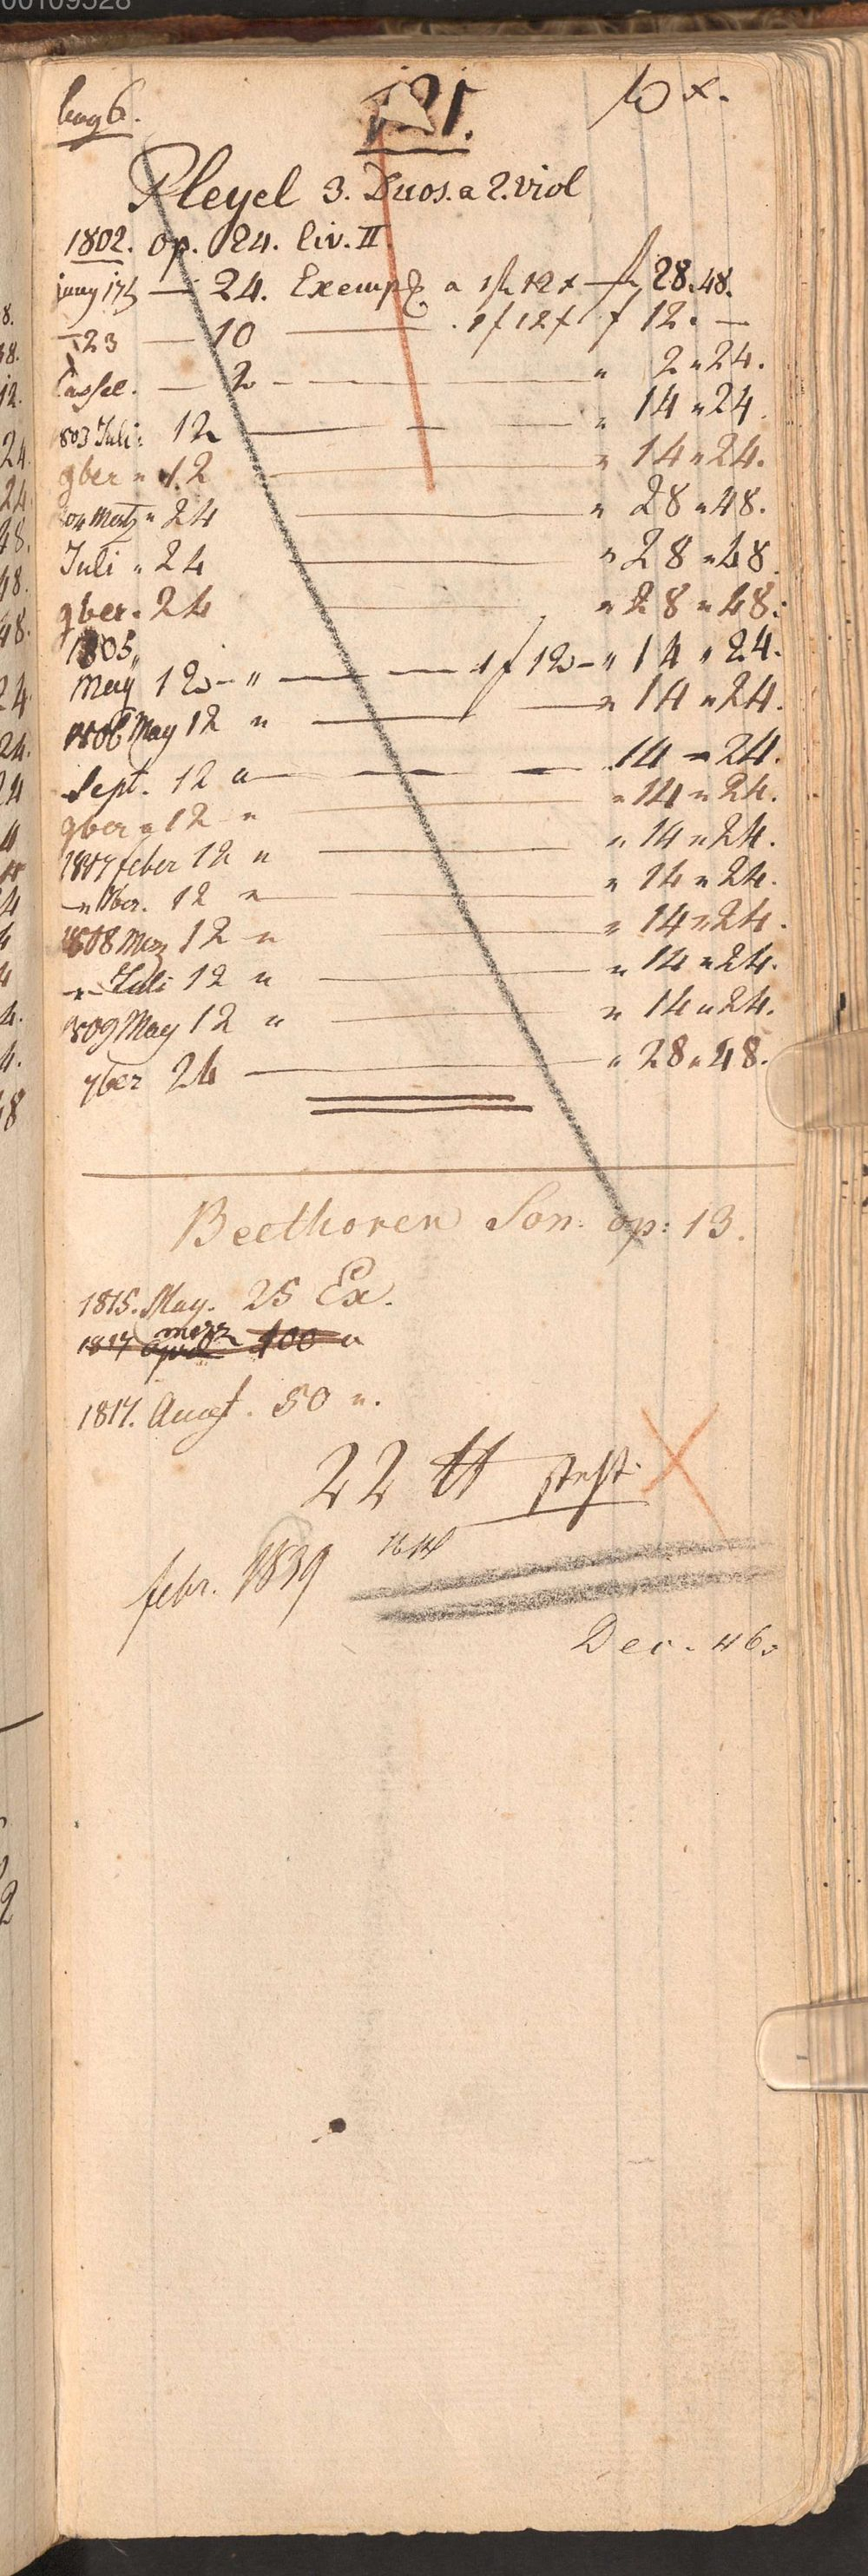 00109528
121.
10 x.
Pleyel 3. Duos. a 2. viol
1802. op. 24. liv. II.
juny 17 — 24. Exempl. a 1 fl 12 x — fl 28.48.
— 23 — 10 — 1 f 12 x f 12. —
Cassel. — 2 — " 2 " 24.
803 Juli: 12 — " 14 " 24.
9ber " 12 — " 14 " 24.
04 Mertz " 24 — " 28 " 48.
Juli " 24 — " 28 " 48
9ber. 24 — " 28 " 48.
1805
May 12 — " — 1 f 12 — " 14 " 24.
1806 May 12 " — " 14 " 24.
Sept. 12 a — 14 " 24.
9ber " 12 " — " 14 " 24.
1807 feber 12 " — " 14 " 24.
— " 8ber. 12 " — " 14 " 24.
1808 Merz 12 " — " 14 " 24.
— " Juli 12 " — " 14 " 24.
1809 May 12 " — " 14 " 24.
7ber 24 — " 28 " 48.
Beethoven Son. op: 13.
1815. May. 25 Ex.
1817 merz april 100 "
1817. Augst. 50 ".
22 tt steht
febr. 1839
Dec. 46